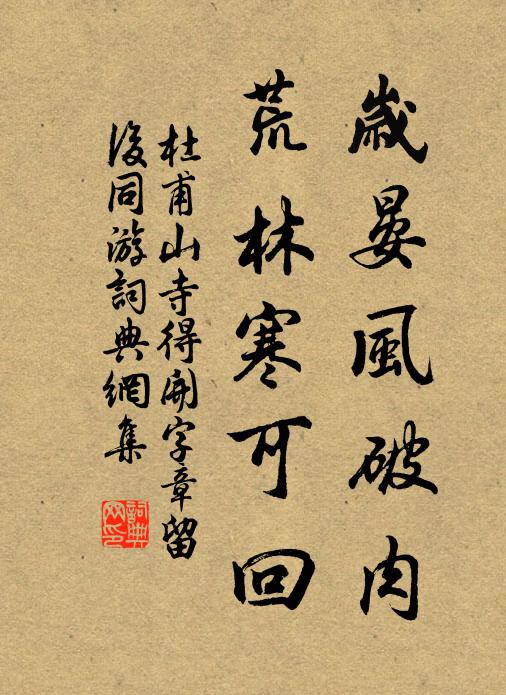 歲晏風破肉
荒林寒可回
杜甫山寺得開字章留
後同游詞典網集
詞典
网印